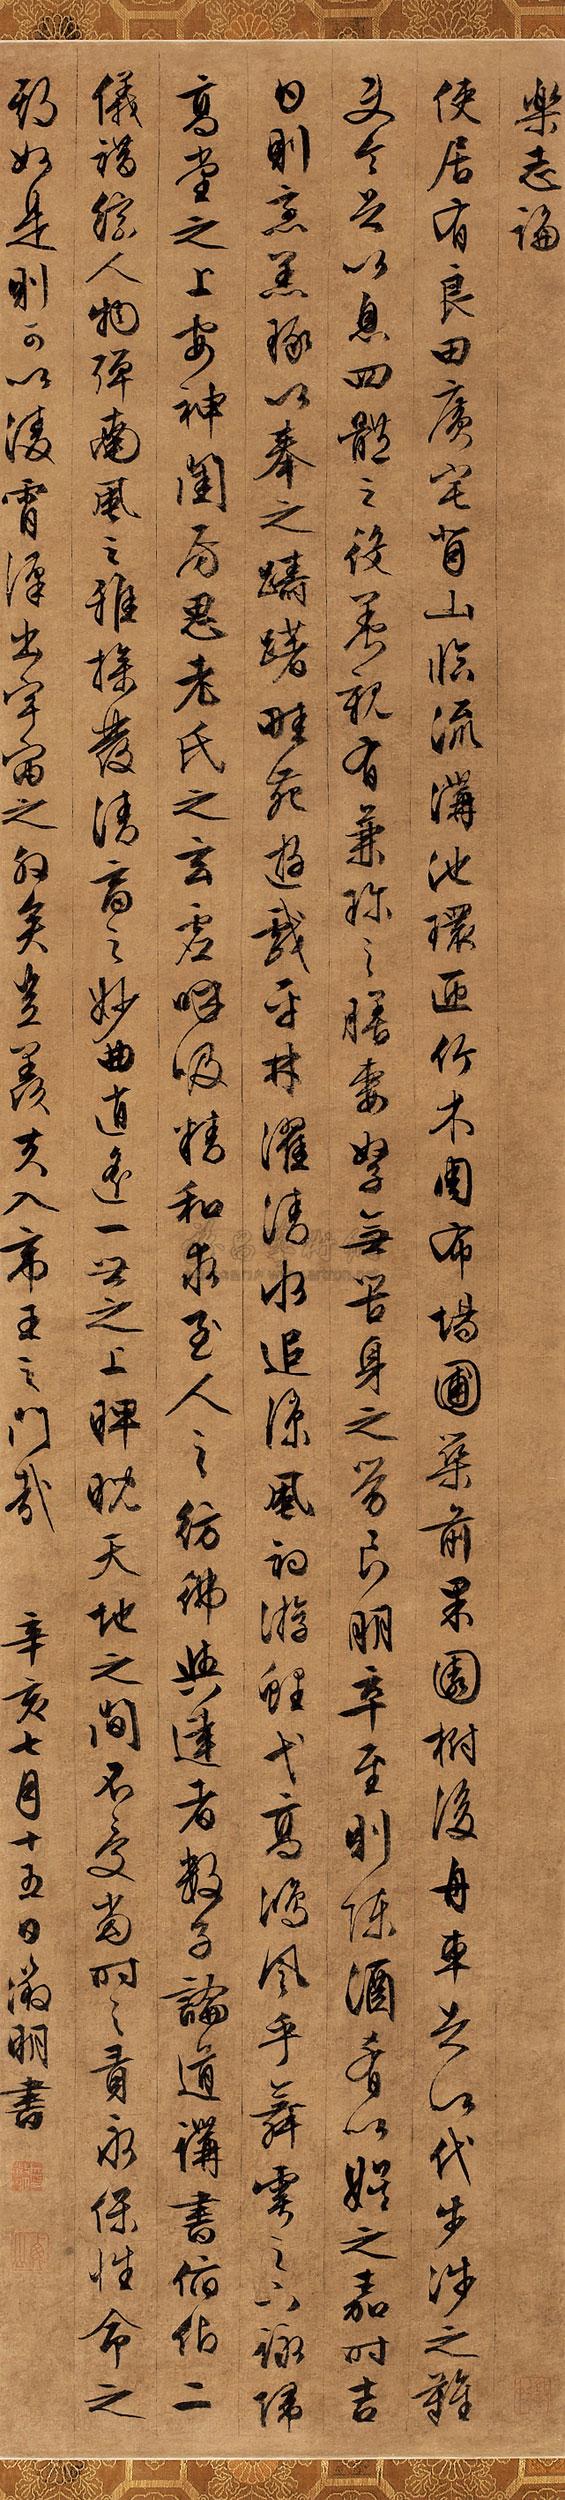 樂志論
使居有良田廣宅背山臨流溝池環匝竹木周布場圃築前果園樹後舟車足以代步涉之難
使令足以息四體之役養親有兼珍之膳妻孥無苦身之勞良朋萃至則陳酒肴以娛之嘉時吉
日則烹羔豚以奉之躊躇畦苑遊戲平林濯清水追涼風釣游鯉弋高鴻風乎舞雩之下詠歸
高堂之上安神閨房思老氏之玄虛呼吸精和求至人之彷彿與達者數子論道講書俯仰二
儀錯綜人物彈南風之雅操發清商之妙曲逍遙一世之上睥睨天地之間不受當時之責永保性命之
期如是則可以淩霄漢出宇宙之外矣豈羨夫入帝王之門哉 辛亥七月十五日徵明書